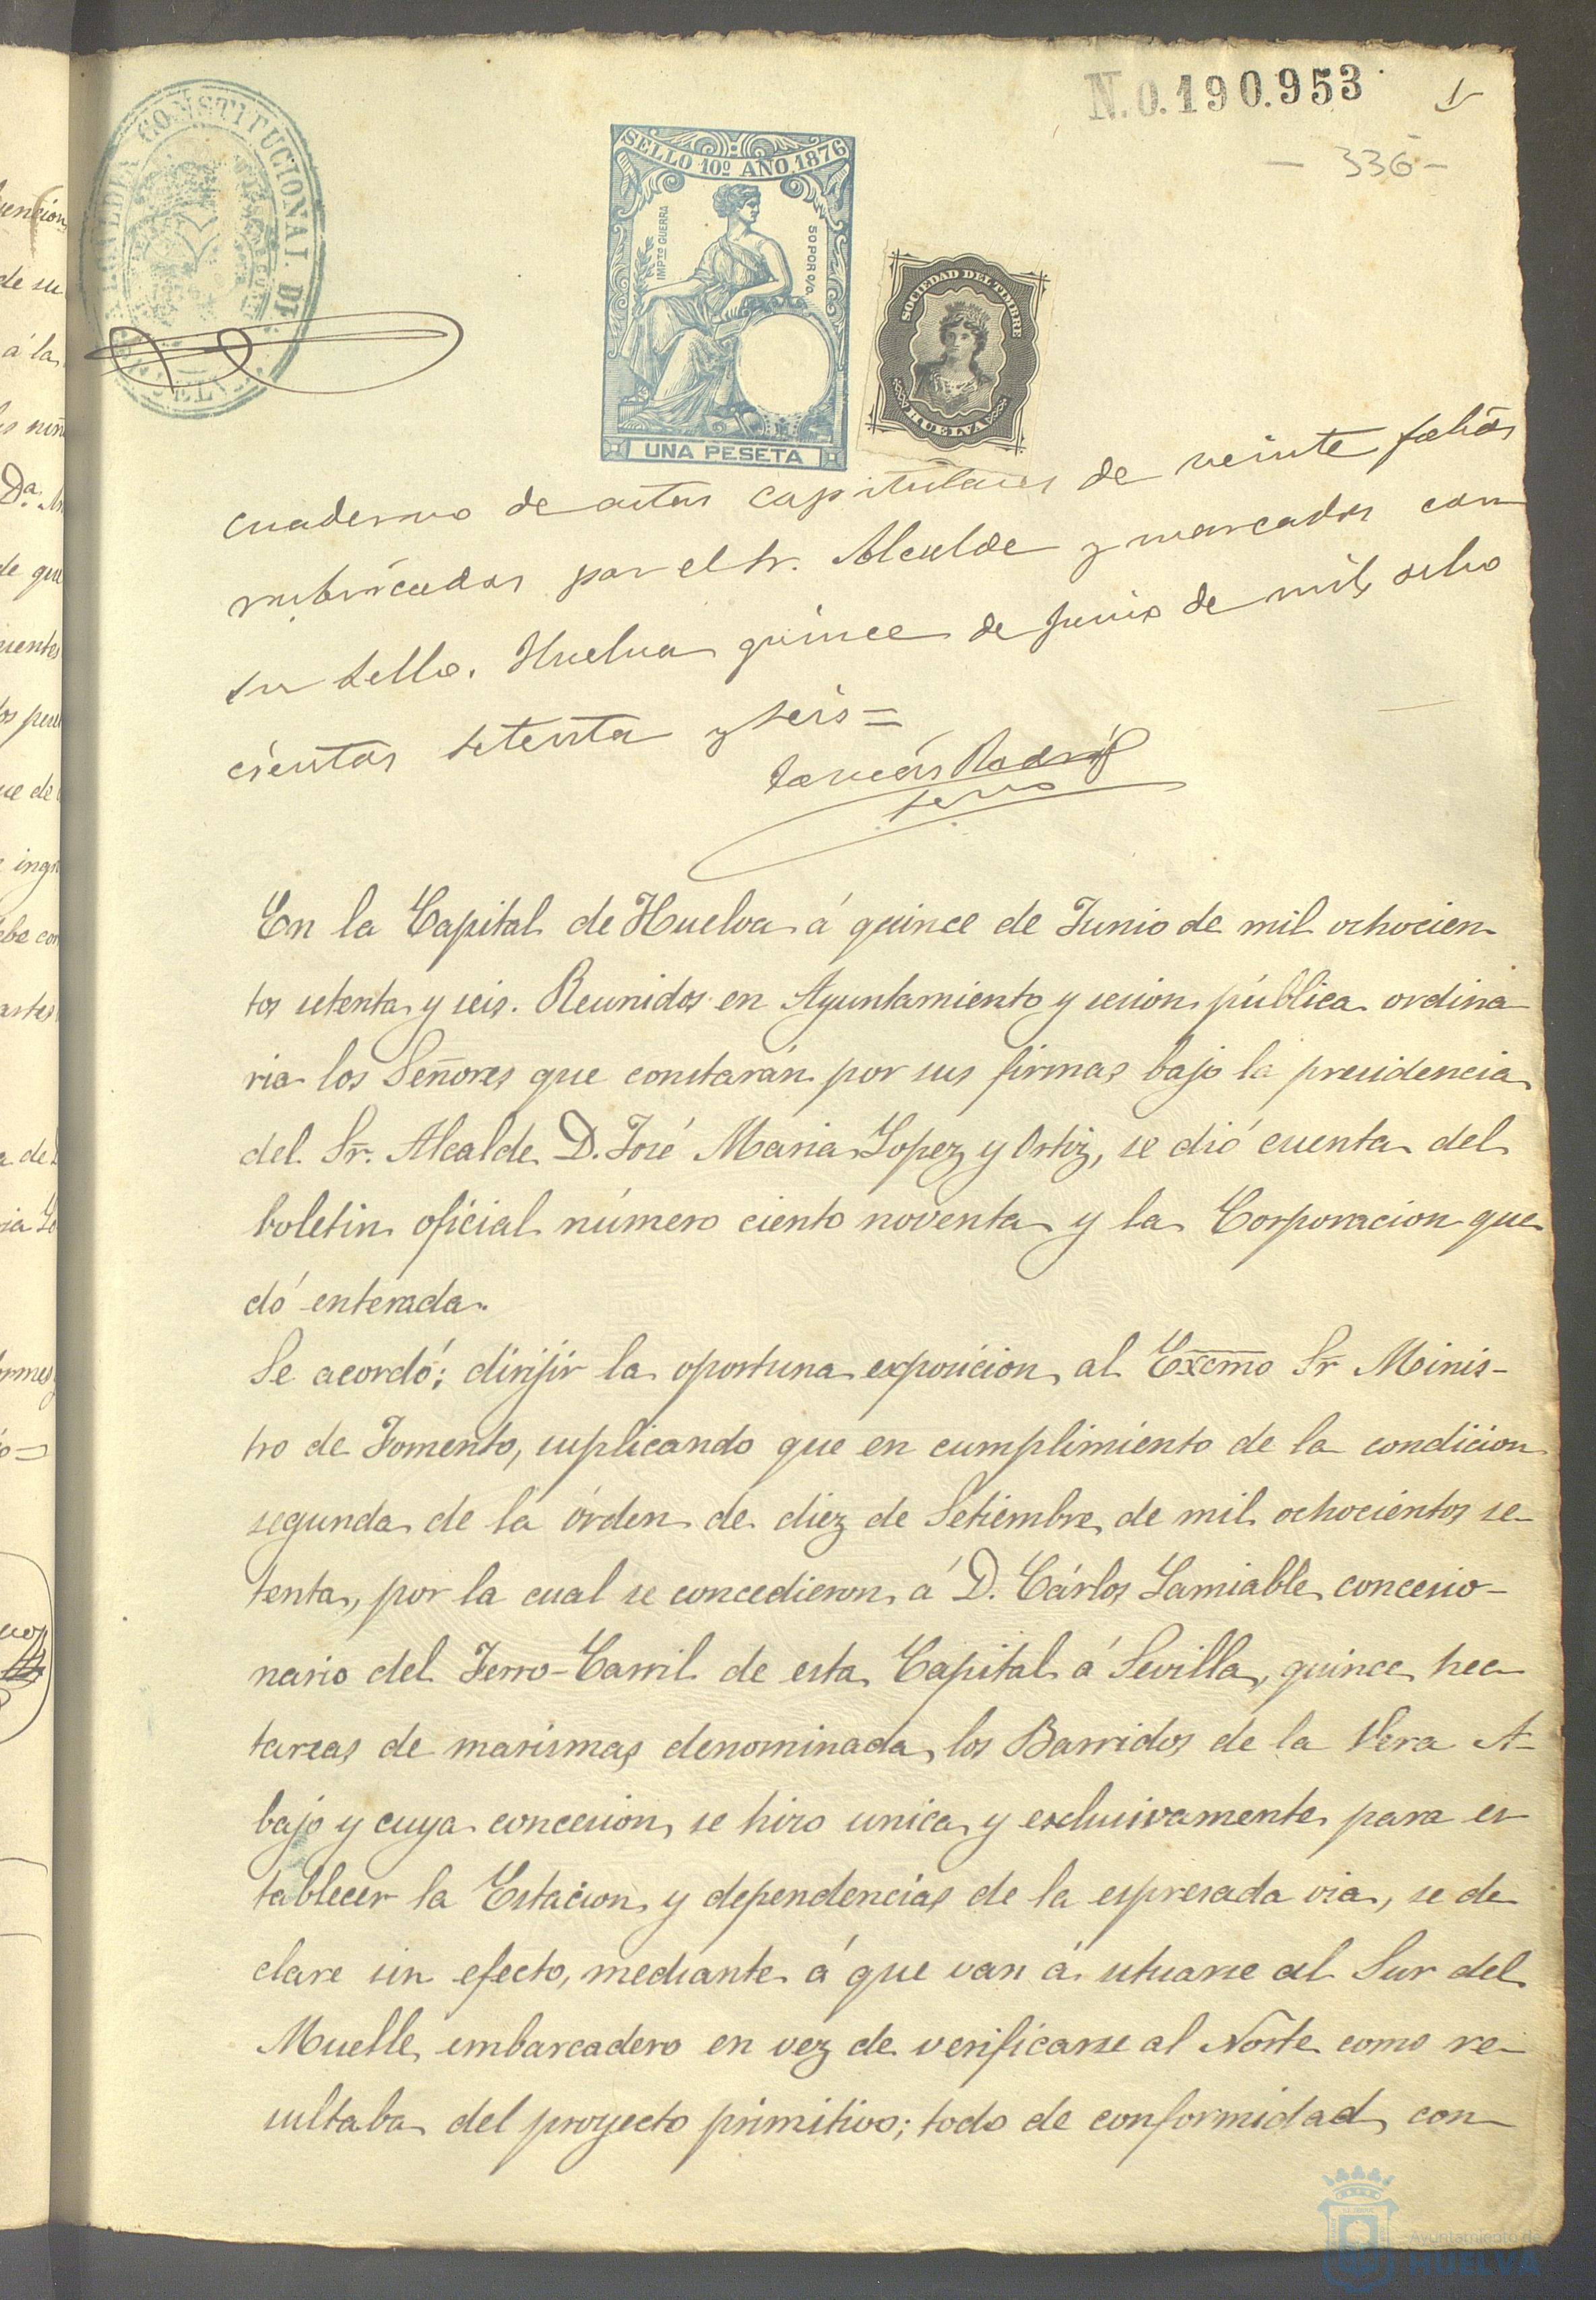 N.0.190.953
1
- 336 -
ALCALDIA CONSTITUCIONAL DE HUELVA
SELLO 10º AÑO 1876
IMPTO GUERRA
50 POR 0/0.
UNA PESETA
SOCIEDAD DEL TIMBRE
HUELVA
Cuaderno de actas capitulares de veinte folios
rubricados por el Sr. Alcalde y marcados con
su sello. Huelva quince de Junio de mil ocho
cientos setenta y seis =
En la Capital de Huelva á quince de Junio de mil ochocien
tos setenta y seis. Reunidos en Ayuntamiento y sesion pública ordina
ria los Señores que constarán por sus firmas bajo la presidencia
del Sr. Alcalde D. José Maria Lopez y Ortiz, se dió cuenta del
boletin oficial número ciento noventa y la Corporacion que
dó enterada.
Se acordó; dirijir la oportuna exposicion al Excmo Sr Minis-
tro de Fomento, suplicando que en cumplimiento de la condicion
segunda de la órden de diez de Setiembre de mil ochocientos se-
tenta, por la cual se concedieron á D. Cárlos Lamiable concesio-
nario del Ferro-Carril de esta Capital á Sevilla, quince hec
tareas de marismas denominada los Barridos de la Vera A-
bajo y cuya concesion se hizo unica y esclusivamente para es
tablecer la Estacion y dependencias de la espresada via, se de
clare sin efecto, mediante á que van á situarse al Sur del
Muelle embarcadero en vez de verificarse al Norte como re-
sultaba del proyecto primitivo; todo de conformidad con
Ayuntamiento de
HUELVA